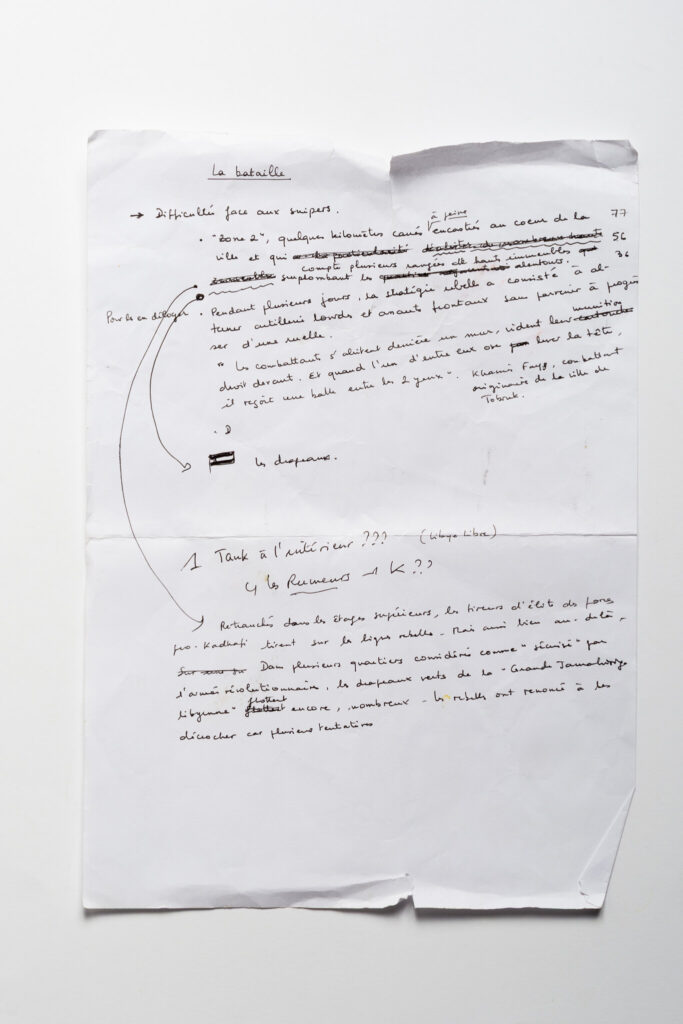 La bataille
→ Difficultés face aux snipers.
à peine
• "Zone 2", quelques kilomètres carrés encastrés au coeur de la 77
ville et qui la particularité d'abriter de nombreux hauts 56
compte plusieurs rangées de hauts immeubles
immeubles surplombant les alentours. 36
Pour les en déloger • Pendant plusieurs jours, la stratégie rebelle a consisté à al-
terner artillerie lourde et assauts frontaux sans parvenir à progres
ser d'une ruelle. munition
" Les combattants s'abritent derrière un mur, vident leur cartouche
droit devant. Et quand l'un d'entre eux ose lever la tête,
il reçoit une balle entre les 2 yeux". Khamis Fragg, combattant
originaire de la ville de
Tobruk.
. D
les drapeaux.
1 Tank à l'intérieur ??? (Libya Libre)
↳ les Rumeurs → K ??
Retranchés dans les étages supérieurs, les tireurs d'élite des forces
pro-Kadhafi tirent sur la ligne rebelle - Mais aussi bien au-delà,
Dans plusieurs quartiers considérés comme "sécurisé" par
l'armée révolutionnaire, les drapeaux verts de la "Grande Jamahiriya
flottent
libyenne" flottent encore, nombreux - les rebelles ont renoncé à les
décrocher car plusieurs tentatives